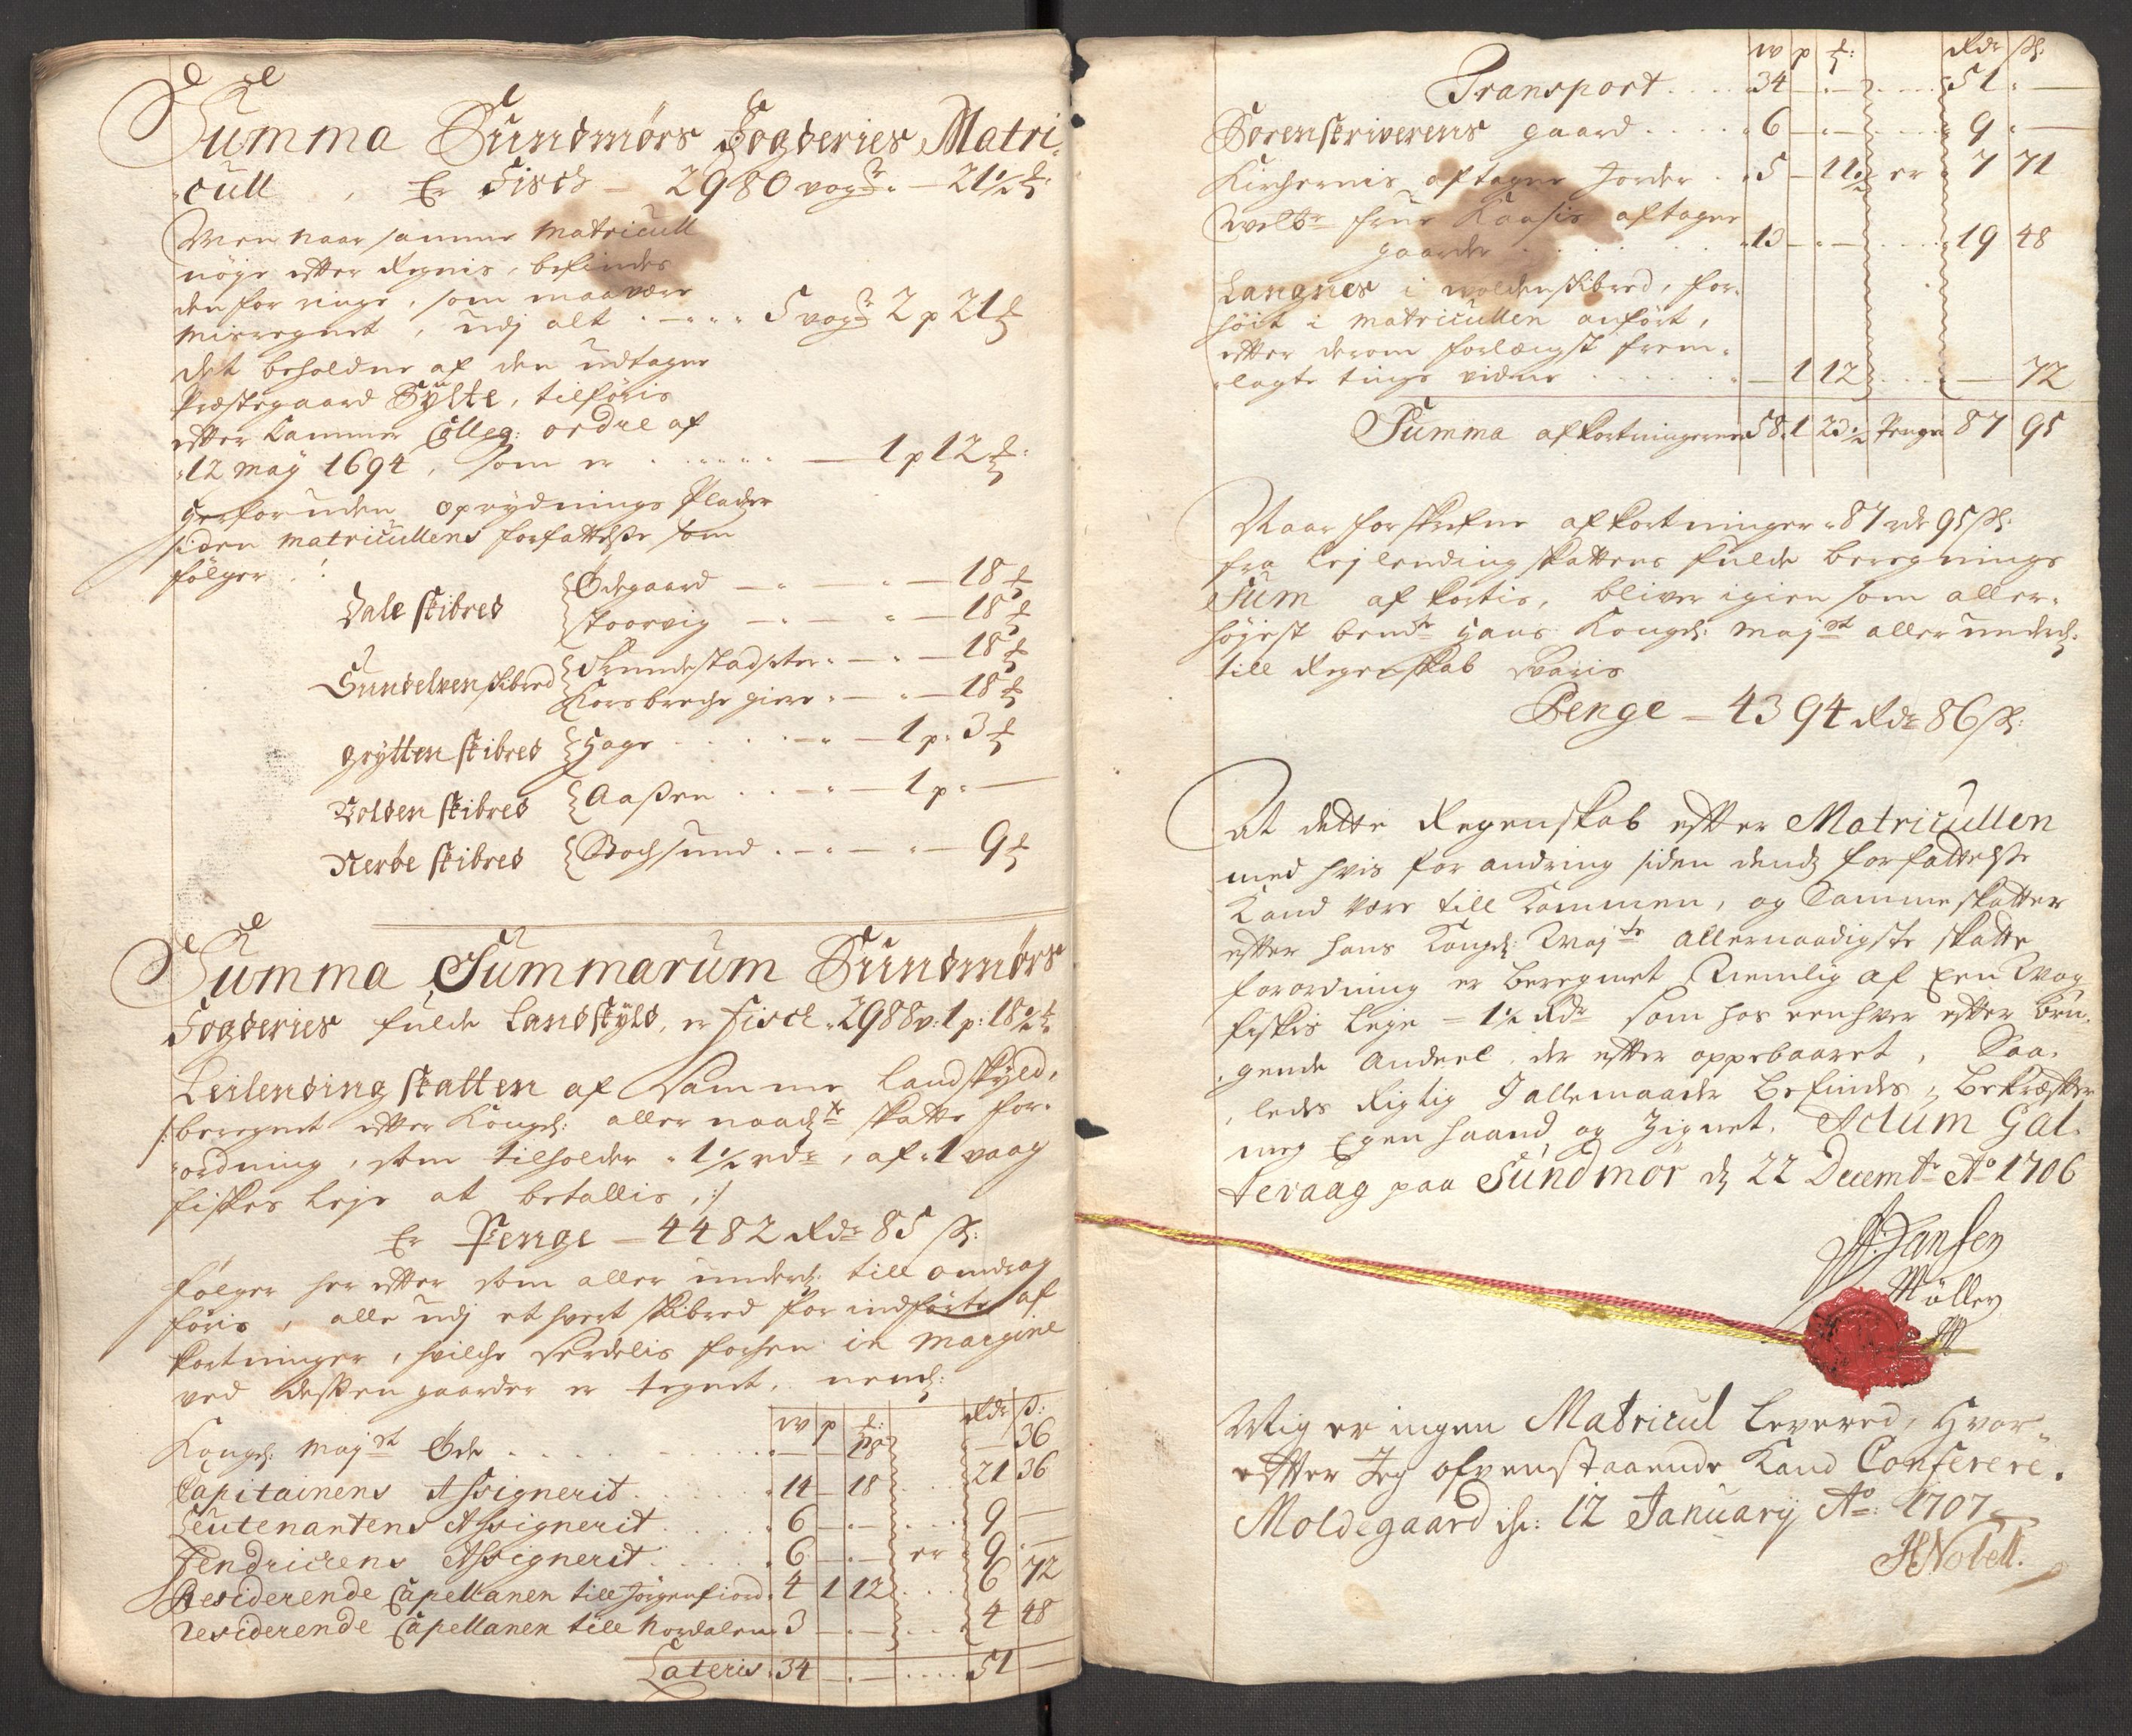 Summa Sundmørs Fogderies Matri-
cull, Er Fisch - 2980 vog - 21½
Men naar samme Matricull
nøye efter Regnis, befindes
den for ringe, som maa være
misregnet, udj alt . - . . . 5 vog 2 p 21
det beholdne af den udtagne
Præstegaard Sylte, tilføris
efter Cammer Colleg: ordre af
12 maÿ 1694, som er . . . . . . — 1 p 12
Herforuden oprydnings Pladtzer
siden matricullens forfattelse som
følger :
Dale skibred Ødegaard — . — . — 18
Skoorvig — . — . — 18
Sundelven skibred — . — 18
Korsbreche giere . — . — 18
grÿtten skibred Hage . . . . — . — 1 p. 3
Volden skibred Aaßen . . . — . — 1 p . —
Nerøe skibred Bochsund . — . — . — 9
Summa Summarum Sundmørs
Fogderies fulde Landskÿld, er Fisch 2988 v: 1 p: 18½
Leilending skatten af Samme Landskÿld,
/: beregnet efter Kongl: aller naad skatte for-
ordning, som tilholder 1½ rdr, af 1 vaag
fiskes leje at betallis, :/
Er Penge — 4482 Rdr 85 ß:
følger her efter som aller underd: till omdrag
føris, alle udj et hvert skibred for indførte af
kortninger, hvilche serdelis forhen in margine
ved desßen gaarder er tegnet, neml:
w p Rdr ß:
Kongl: maj Øde . . . . . . — — 18 — 36
Capitainens Assignerit . . . . . 14 — 18 . . . 21 36
Leutenantens Assignerit . . . . . 6 — . — . . . 9 —
Fendrichens Assignerit . . . . . 6 — . — er 9 . —
Residerende Capellanen till Jørgenfiord 4 1 12 . . . 6 72
residerende Capellanen till Nordalen 3 — . — . . . 4 48
Lateris 34 — . — . . . . 51 —
w p Rdr ß:
Transport . . . . 34 — . — . . . . 51 . —
Sorenskriverens gaard . . . . 6 — . — . . . . 9 . —
Kirchernis aftagne Jorder . 5 — 11½ er 7 71
Welb: frue Kaasis aftagne
gaarder . . . . . . 13 — . — . . . . 19 48
Langnes i wolden skibred, for-
høit i matricullen anført,
efter derom forlængst frem-
lagte tings vidne . . . . . . — 1 12 . . . — 72
Summa afkortningerne 58 1 23½ Penge 87 95
Naar forskrefne afkortninger 87 rdr 95 ß:
fra Leilending skattens fulde beregnings
Sum afkortis, bliver igien som aller-
høyest bemte Hans Kongl: Maj aller underd:
till Regenskab svaris
Penge — 4394 Rdr 86 ß:
At dette Regenskab efter Matricullen
med hvis forandring siden dends forfattelse
Kand være till Kommen, og Samme skatter
efter hans Kongl: May allernaadigste skatte
forordning er beregnet Nemlig af Een Wog
fiskis Leje = 1½ Rdr som hos eenhver efter bru-
gende Andeel der efter oppebaaret, Saa-
ledes Rigtig J allemaader befindes, bekræfter
meg Egen haand og Zignet. Actum Gal-
teraag paa Sundmør d 22 Decembr Ao 1706
Jansen
Møller
Mig er ingen Matricul levered, Hvor-
effter Jeg ofvenstaaende Kand Conferere.
Moldegaard d: 12 Januarij Ao: 1707
HNobell.